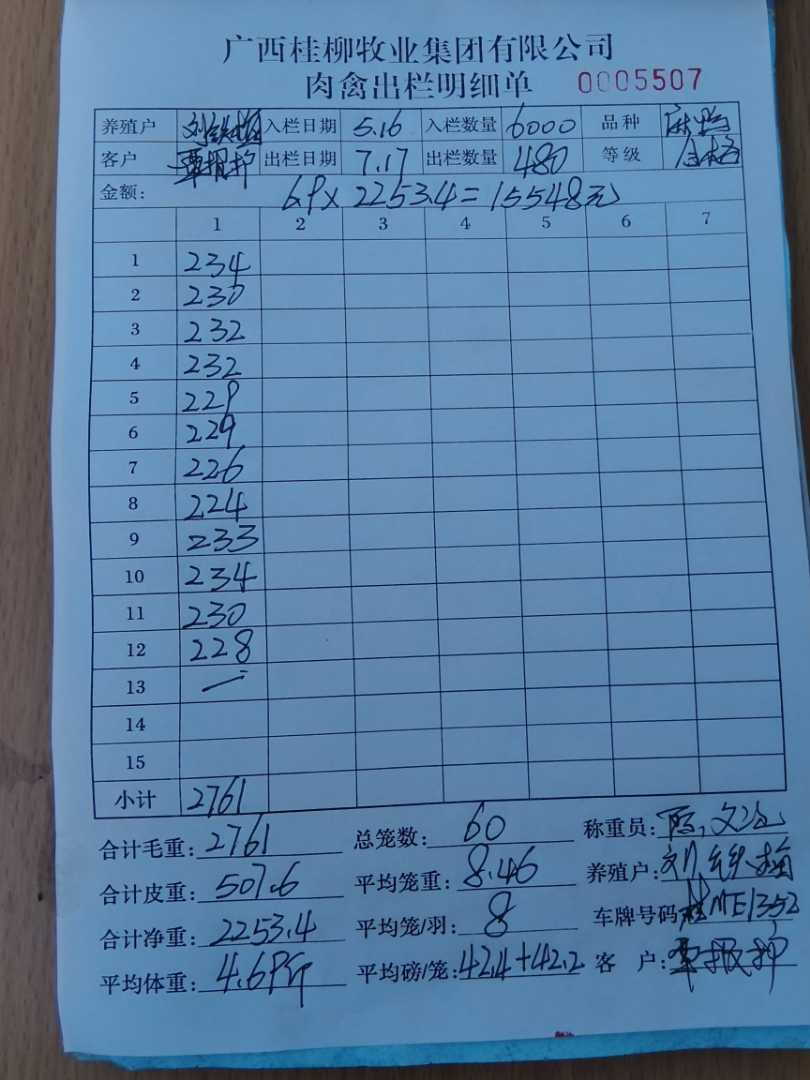 广西桂柳牧业集团有限公司
肉禽出栏明细单 0005507
养殖户 入栏日期 5.16 入栏数量 6000 品种 麻鸭
客户 出栏日期 7.17 出栏数量 480 等级 合格
金额: 6.9 x 2253.4 = 15548元
1 2 3 4 5 6 7
1 234
2 230
3 232
4 232
5 229
6 229
7 226
8 224
9 233
10 234
11 230
12 228
13
14
15
小计 2761
合计毛重: 2761 总笼数: 60 称重员:
合计皮重: 507.6 平均笼重: 8.46 养殖户:
合计净重: 2253.4 平均笼/羽: 8 车牌号码 桂ME1352
平均体重: 4.69斤 平均磅/笼: 42.4+42.2 客 户: